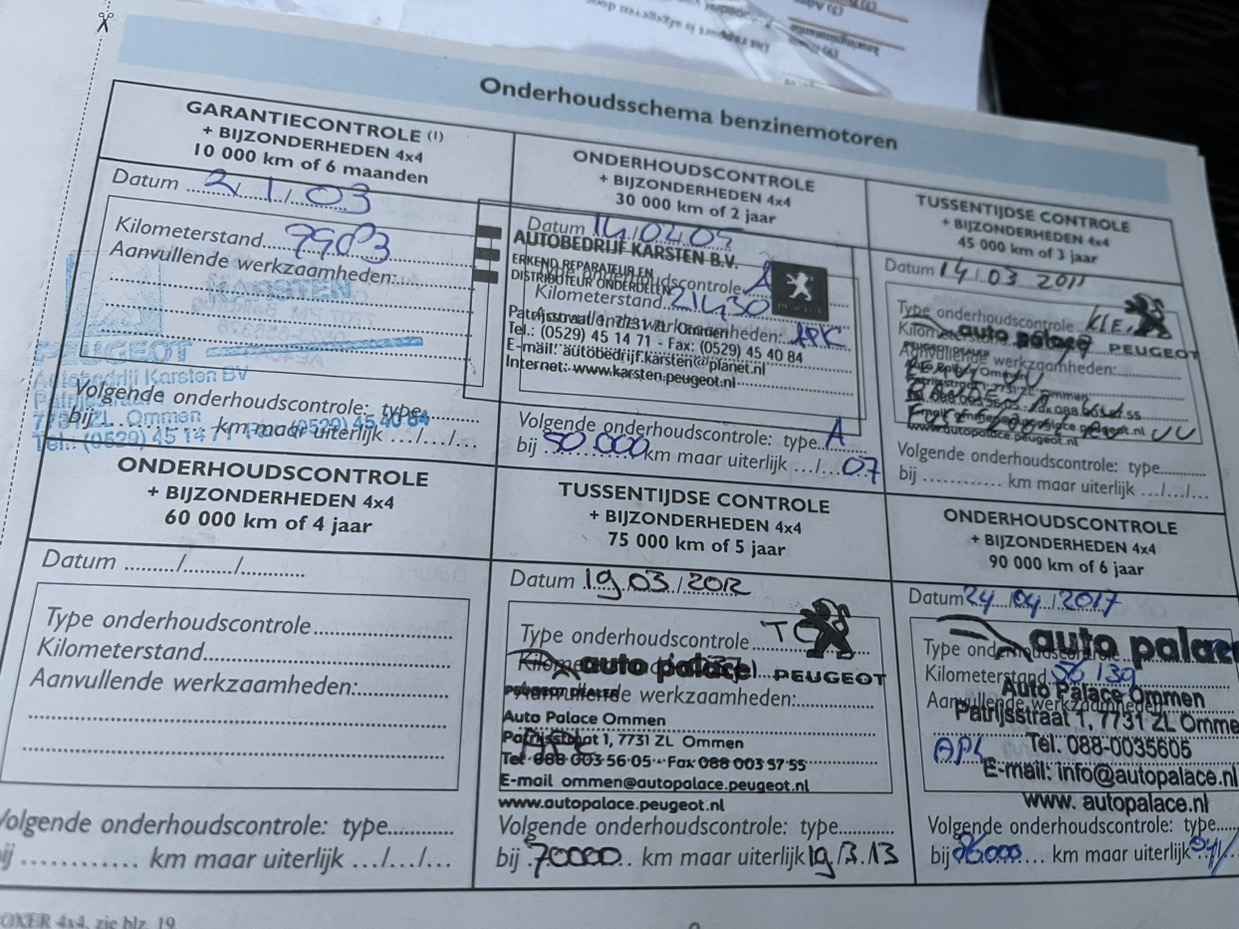 Onderhoudsschema benzinemotoren
GARANTIECONTROLE (1)
+ BIJZONDERHEDEN 4x4
10 000 km of 6 maanden
Datum 2/1/03
Kilometerstand
Aanvullende werkzaamheden:
KARSTEN
PEUGEOT
Autobedrijf Karsten BV
7731 ZL Ommen
Tel.: (0529) 45 14 71 (0529) 45 40 84
Volgende onderhoudscontrole: type
bij km maar uiterlijk .../.../...
ONDERHOUDSCONTROLE
+ BIJZONDERHEDEN 4x4
30 000 km of 2 jaar
Datum 14/04/05
AUTOBEDRIJF KARSTEN B.V.
ERKEND REPARATEUR EN
DISTRIBUTEUR ONDERDELEN
Type onderhoudscontrole A
Kilometerstand 21430
Aanvullende werkzaamheden: APK
Patrijsstraat 1, 7731 ZL Ommen
Tel.: (0529) 45 14 71 - Fax: (0529) 45 40 84
E-mail: autobedrijf.karsten@planet.nl
Internet: www.karsten.peugeot.nl
Volgende onderhoudscontrole: type A
bij 50.000 km maar uiterlijk .../... 07
TUSSENTIJDSE CONTROLE
+ BIJZONDERHEDEN 4x4
45 000 km of 3 jaar
Datum 14/03 2011
Type onderhoudscontrole
auto palace PEUGEOT
Aanvullende werkzaamheden:
www.autopalace.peugeot.nl
Volgende onderhoudscontrole: type
bij ............ km maar uiterlijk .../.../...
ONDERHOUDSCONTROLE
+ BIJZONDERHEDEN 4x4
60 000 km of 4 jaar
Datum ........./......../............
Type onderhoudscontrole
Kilometerstand
Aanvullende werkzaamheden:
Volgende onderhoudscontrole: type
km maar uiterlijk .../.../...
TUSSENTIJDSE CONTROLE
+ BIJZONDERHEDEN 4x4
75 000 km of 5 jaar
Datum 19.03/2012
Type onderhoudscontrole TC
auto palace PEUGEOT
PEUGEOT DEALER
Aanvullende werkzaamheden:
Auto Palace Ommen
Patrijsstraat 1, 7731 ZL Ommen
Tel 088 003 56 05 Fax 088 003 57 55
E-mail ommen@autopalace.peugeot.nl
www.autopalace.peugeot.nl
Volgende onderhoudscontrole: type
bij 70000 km maar uiterlijk 19.3.13
ONDERHOUDSCONTROLE
+ BIJZONDERHEDEN 4x4
90 000 km of 6 jaar
Datum 24/04/2017
auto palace
Type onderhoudscontrole
Kilometerstand 56139
Auto Palace Ommen
Aanvullende werkzaamheden
Patrijsstraat 1, 7731 ZL Omme
Tel. 088-0035605
E-mail: info@autopalace.nl
www. autopalace.nl
Volgende onderhoudscontrole: type
bij 86000 km maar uiterlijk 04/
4x4, zie blz. 19